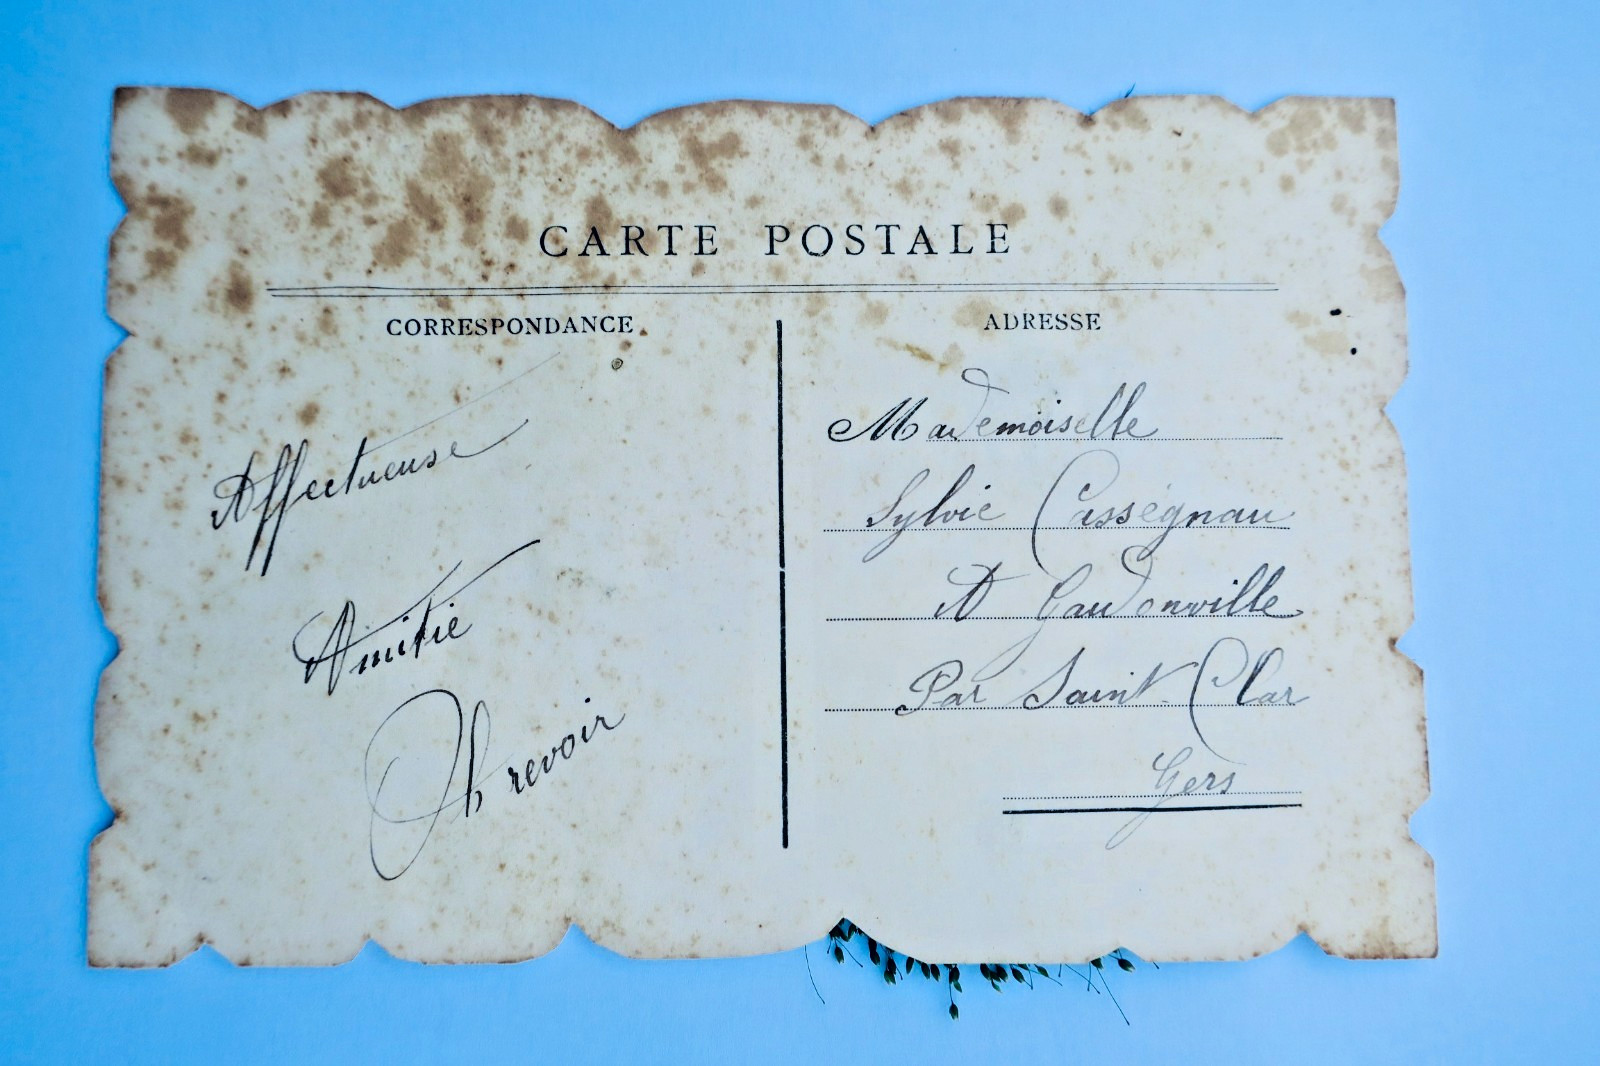 CARTE POSTALE
CORRESPONDANCE
Affectueuse
Amitie
revoir
ADRESSE
Mademoiselle
Sylvie Casségnau
A Gaudonville
Par Saint-Clar
Gers